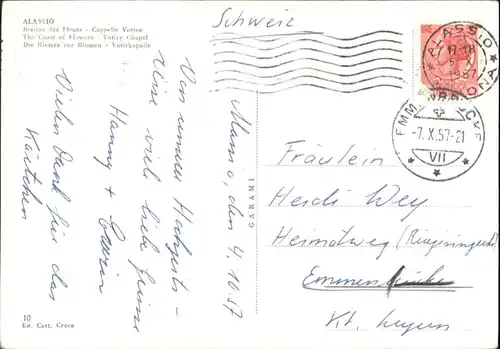 ALASSIO
Riviera dei Fiori - Cappella Votiva
The Coast of Flowers - Votive Chapel
Die Riviera der Blumen - Votivkapelle
Schweiz
ALASSIO
17-18
X
1957
SAVONA
EMMENBRÜCKE
-7.X.57-21
VII
Alassio, den 4.10.57
Von unserer Hochzeits-
reise viel liebe Grüsse
Hanny +
Vielen Dank für das
Kärtchen
GARAMI
Fräulein
Heidi Wey
Heimatweg
Emmenbrücke
Kt. Luzern
10
Ed. Cart. Croce